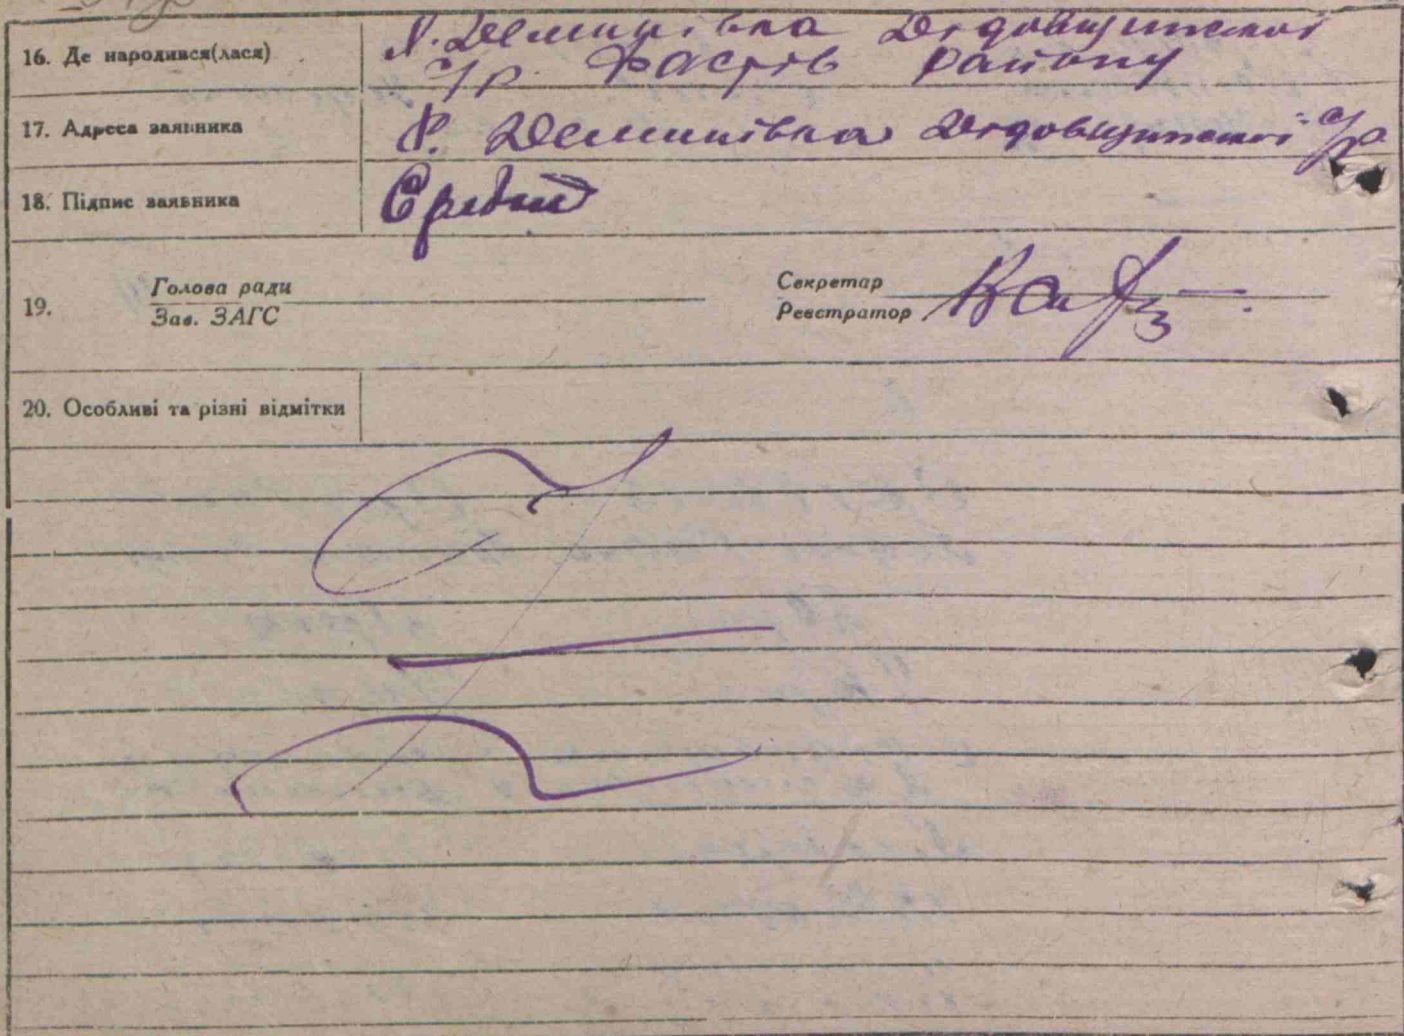 16. Де народився(лася)
Х. Деминівка Дідовщинської
с/р. Фастів району
17. Адреса заявника
Х. Деминівка Дідовщинської с/р
18. Підпис заявника
19.
Голова ради
Зав. ЗАГС
Секретар
Реєстратор
20. Особливі та різні відмітки